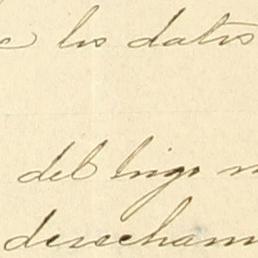 los datos
del higo
desecham